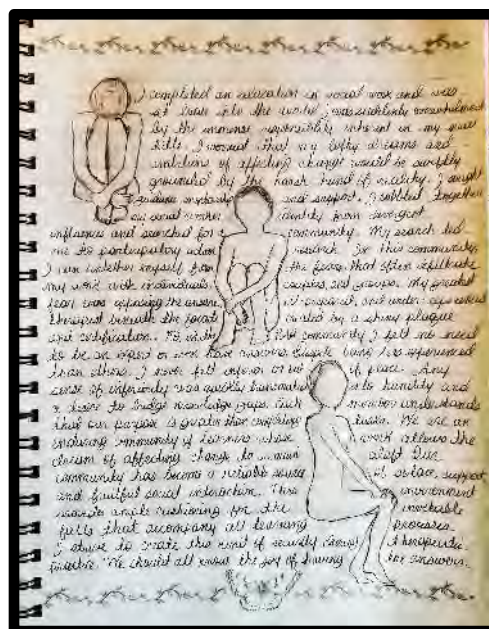 I completed an education in social work and was
let loose into the world, I was suddenly overwhelmed
by the immense responsibility inherent in my new
skills. I worried that my lofty dreams and
ambitions of affecting change would be swiftly
grounded by the harsh hand of reality. I sought
guidance, mentorship and support. I cobbled together
our social worker identity from divergent
influences and searched for a community. My search led
me to participatory action research. In this community
I can untether myself from the fears that often infiltrate
my work with individuals, couples, and groups. My greatest
fear was exposing the unsure, ill-equipped, and under-experienced
therapist beneath the facade created by a shiny plaque
and certification. Yet, in the PAR community I felt no need
to be an expert or even have answers. Despite being less experienced
than others, I never felt inferior or out of place. Any
sense of inferiority was quickly transmuted into humility and
a desire to bridge knowledge gaps. Each member understands
that our purpose is greater than completing tasks. We are an
enduring community of learners whose work allows the
dream of affecting change to remain aloft. Our
community has become a reliable source of solace, support,
and fruitful social interaction. This environment
provides ample cushioning for the inevitable
falls that accompany all learning processes.
I strive to create this kind of security through therapeutic
practice. We should all know the joy of having the answers.